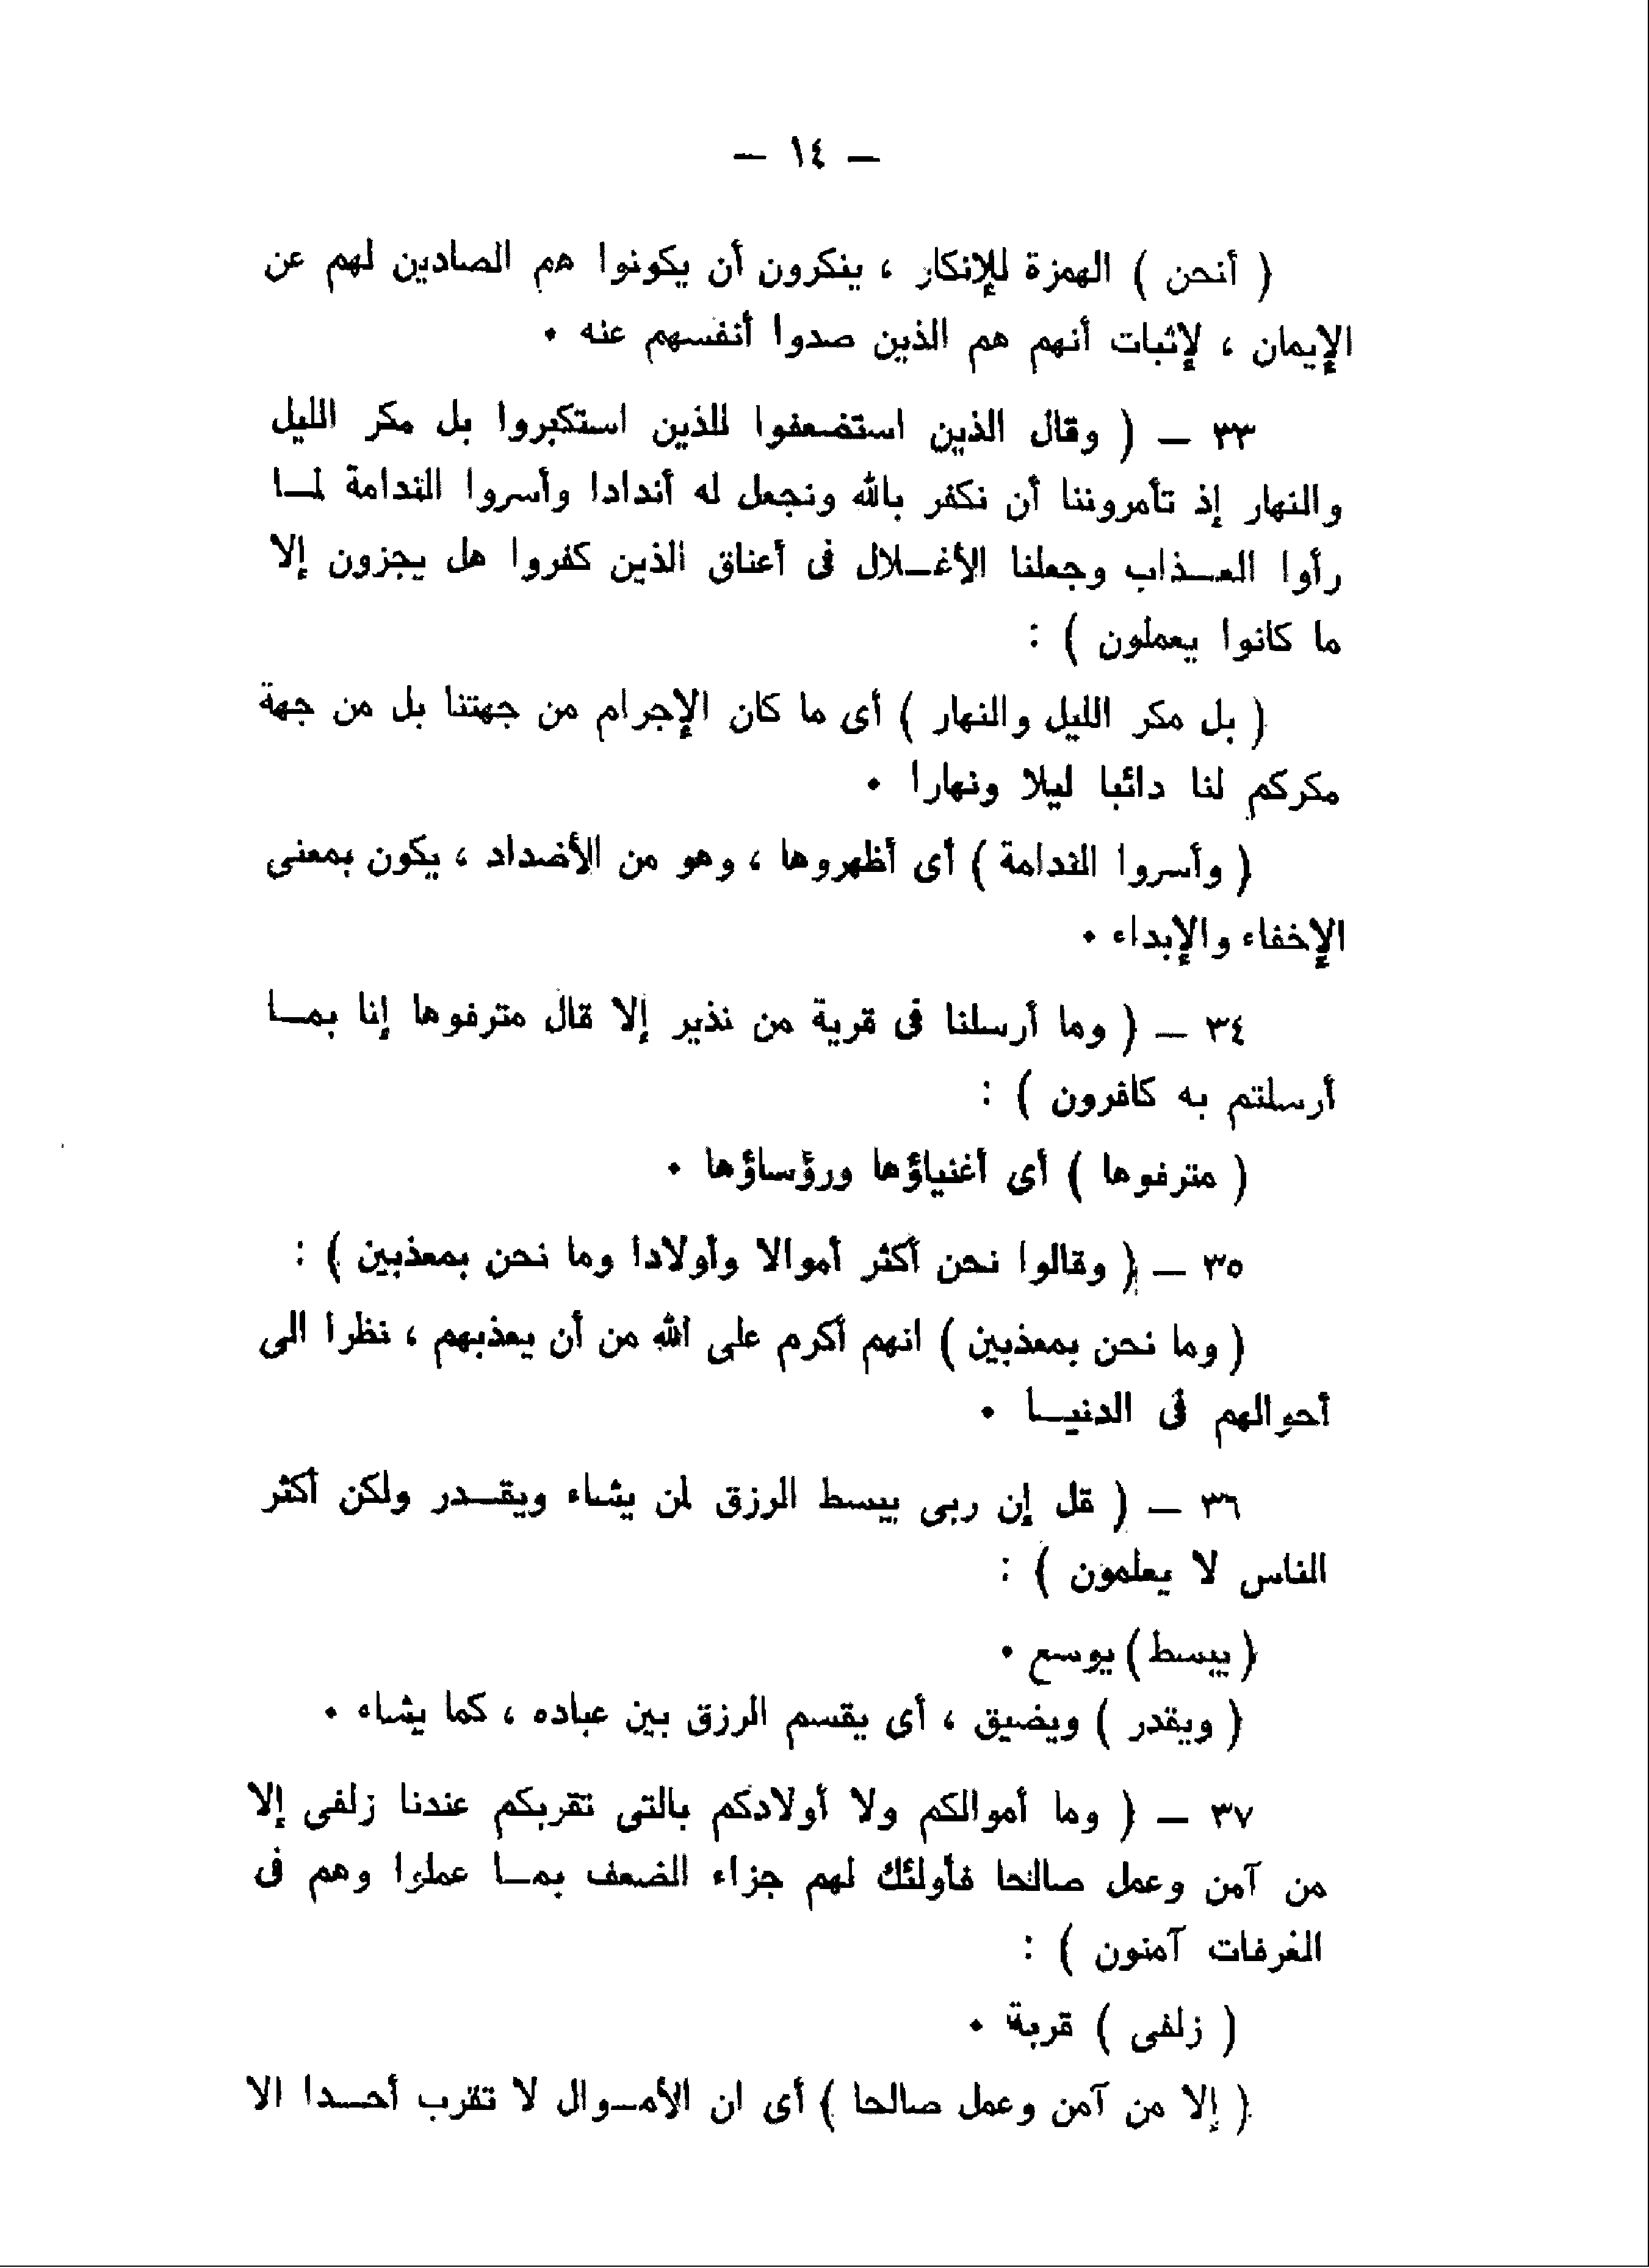 — ١٤ —
( أنحن ) الهمزة للإنكار ، ينكرون أن يكونوا هم الصادين لهم عن
الإيمان ، لإثبات أنهم هم الذين صدوا أنفسهم عنه .
٣٣ — ( وقال الذين استضعفوا للذين استكبروا بل مكر الليل
والنهار إذ تأمروننا أن نكفر بالله ونجعل له أندادا وأسروا الندامة لمـا
رأوا العـذاب وجعلنا الأغـلال فى أعناق الذين كفروا هل يجزون إلا
ما كانوا يعملون ) :
( بل مكر الليل والنهار ) أى ما كان الإجرام من جهتنا بل من جهة
مكركم لنا دائبا ليلا ونهارا .
( وأسروا الندامة ) أى أظهروها ، وهو من الأضداد ، يكون بمعنى
الإخفاء والإبداء .
٣٤ — ( وما أرسلنا فى قرية من نذير إلا قال مترفوها إنا بمـا
أرسلتم به كافرون ) :
( مترفوها ) أى أغنياؤها ورؤساؤها .
٣٥ — ( وقالوا نحن أكثر أموالا وأولادا وما نحن بمعذبين ) :
( وما نحن بمعذبين ) انهم أكرم على الله من أن يعذبهم ، نظرا الى
أحوالهم فى الدنيـا .
٣٦ — ( قل إن ربى يبسط الرزق لمن يشاء ويقـدر ولكن أكثر
الناس لا يعلمون ) :
( يبسط ) يوسع .
( ويقدر ) ويضيق ، أى يقسم الرزق بين عباده ، كما يشاء .
٣٧ — ( وما أموالكم ولا أولادكم بالتى تقربكم عندنا زلفى إلا
من آمن وعمل صالحا فأولئك لهم جزاء الضعف بمـا عملوا وهم فى
الغرفات آمنون ) :
( زلفى ) قربة .
( إلا من آمن وعمل صالحا ) أى ان الأمـوال لا تقرب أحـدا الا